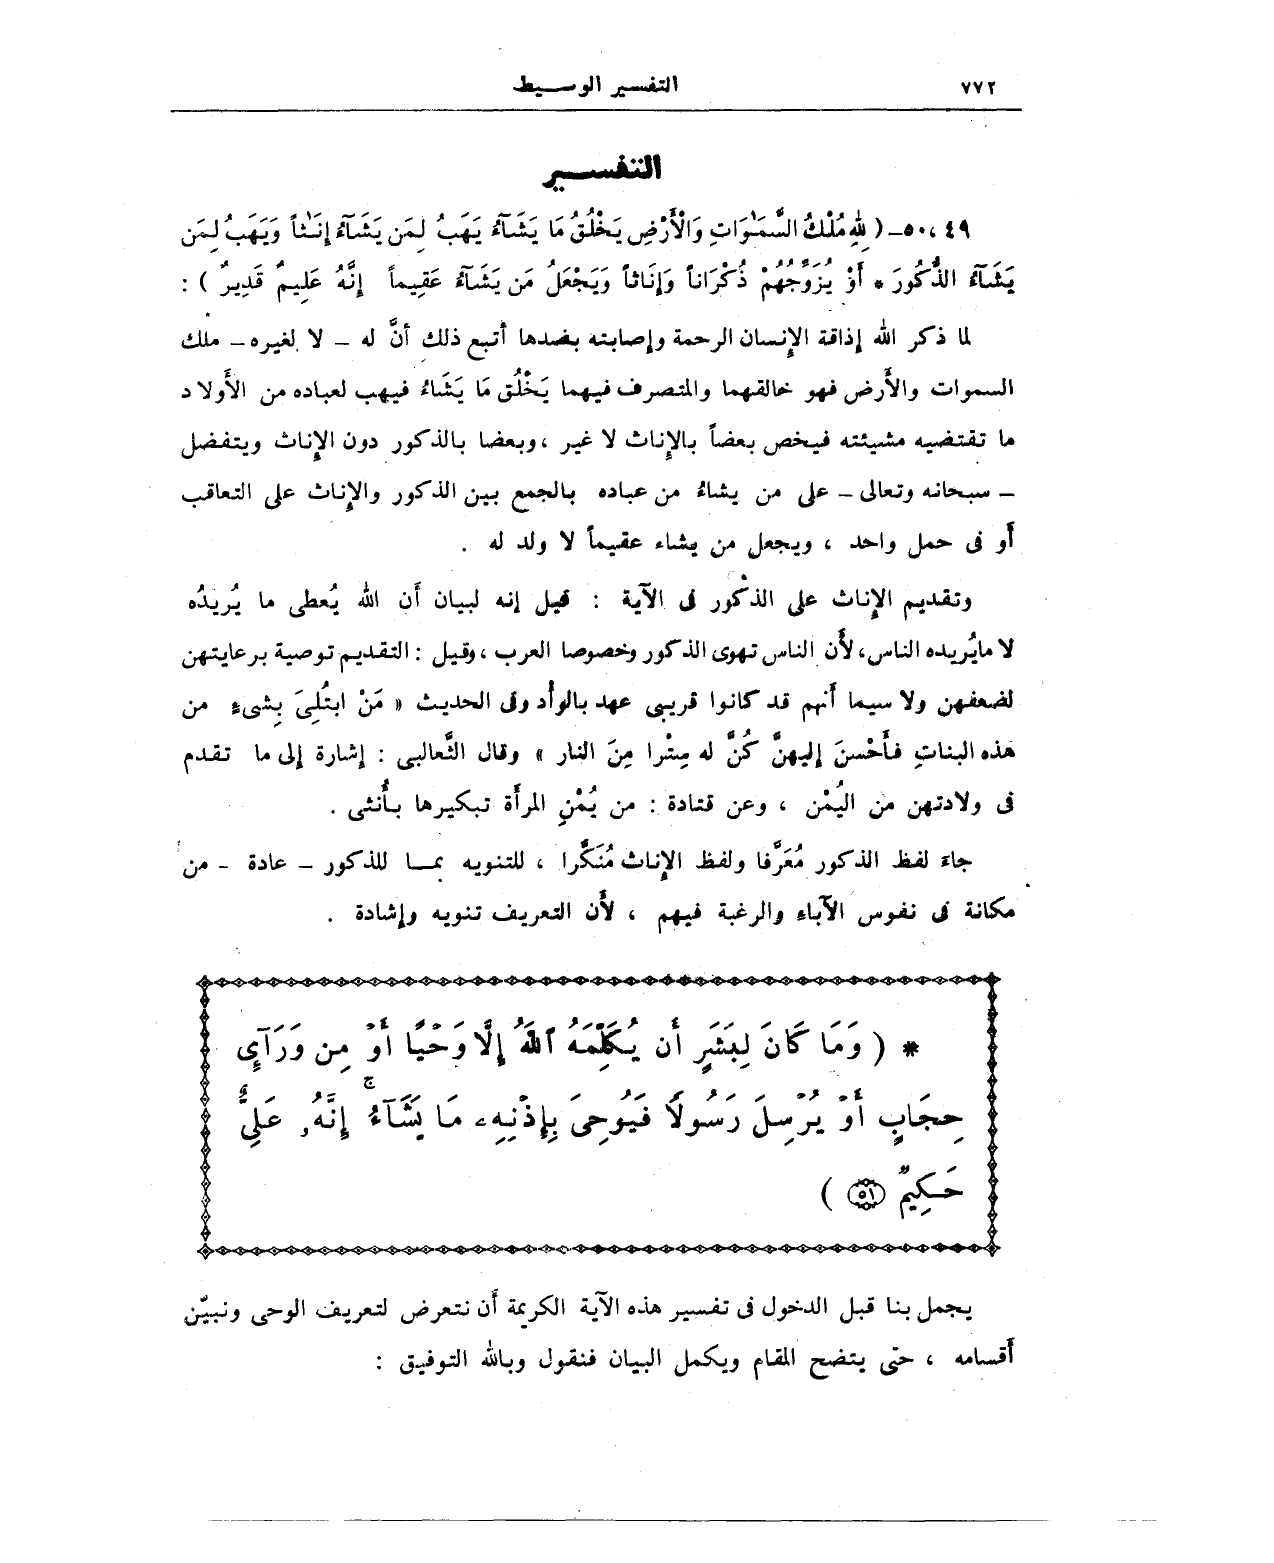 ٧٧٢ التفسير الوسيط
التفسير
٤٩ ،٥٠ـ ( لِلهِ مُلْكُ السَّمَٰوَاتِ وَالْأَرْضِ يَخْلُقُ مَا يَشَآءُ يَهَبُ لِمَن يَشَآءُ إِنَٰثاً وَيَهَبُ لِمَن
يَشَآءُ الذُّكُورَ * أَوْ يُزَوِّجُهُمْ ذُكْرَاناً وَإِنَاثاً وَيَجْعَلُ مَن يَشَآءُ عَقِيماً إِنَّهُ عَلِيمٌ قَدِيرٌ ) :
لما ذكر الله إذاقة الإنسان الرحمة وإصابته بضدها أتبع ذلك أنَّ له ـ لا لغيره ـ ملك
السموات والأرض فهو خالقهما والمتصرف فيهما يَخْلُق مَا يَشَاءُ فيهب لعباده من الأولاد
ما تقتضيه مشيئته فيخص بعضاً بالإناث لا غير ، وبعضا بالذكور دون الإناث ويتفضل
ـ سبحانه وتعالى ـ على من يشاءُ من عباده بالجمع بين الذكور والإناث على التعاقب
أو فى حمل واحد ، ويجعل من يشاء عقيماً لا ولد له .
وتقديم الإناث على الذكور فى الآية : قيل إنه لبيان أن الله يُعطى ما يُريدُه
لا مايُريده الناس، لأَن الناس تهوى الذكور وخصوصا العرب ، وقيل : التقديم توصية برعايتهن
لضعفهن ولا سيما أنهم قد كانوا قريبى عهد بالوأد وفى الحديث « مَنْ ابتُلِىَ بِشىءٍ من
هذه البناتِ فأَحْسنَ إليهنَّ كُنَّ له سِتْرا مِنَ النار » وقال الثَّعالبى : إشارة إلى ما تقدم
فى ولادتهن من اليُمْن ، وعن قتادة : من يُمْنِ المرأة تبكيرها بأُنثى .
جاءَ لفظ الذكور مُعَرَّفا ولفظ الإناث مُنَكَّرا ، للتنويه بمـا للذكور ـ عادة ـ من
مكانة فى نفوس الآباء والرغبة فيهم ، لأَن التعريف تنويه وإشادة .
* ( وَمَا كَانَ لِبَشَرٍ أَن يُكَلِّمَهُ ٱللَّهُ إِلَّا وَحْيًا أَوْ مِن وَرَآىِٕ
حِجَابٍ أَوْ يُرْسِلَ رَسُولًا فَيُوحِىَ بِإِذْنِهِۦ مَا يَشَآءُ ۚ إِنَّهُۥ عَلِىٌّ
حَكِيمٌ ٥١ )
يجمل بنا قبل الدخول فى تفسير هذه الآية الكريمة أن نتعرض لتعريف الوحى ونبيّن
أقسامه ، حتى يتضح المقام ويكمل البيان فنقول وبالله التوفيق :